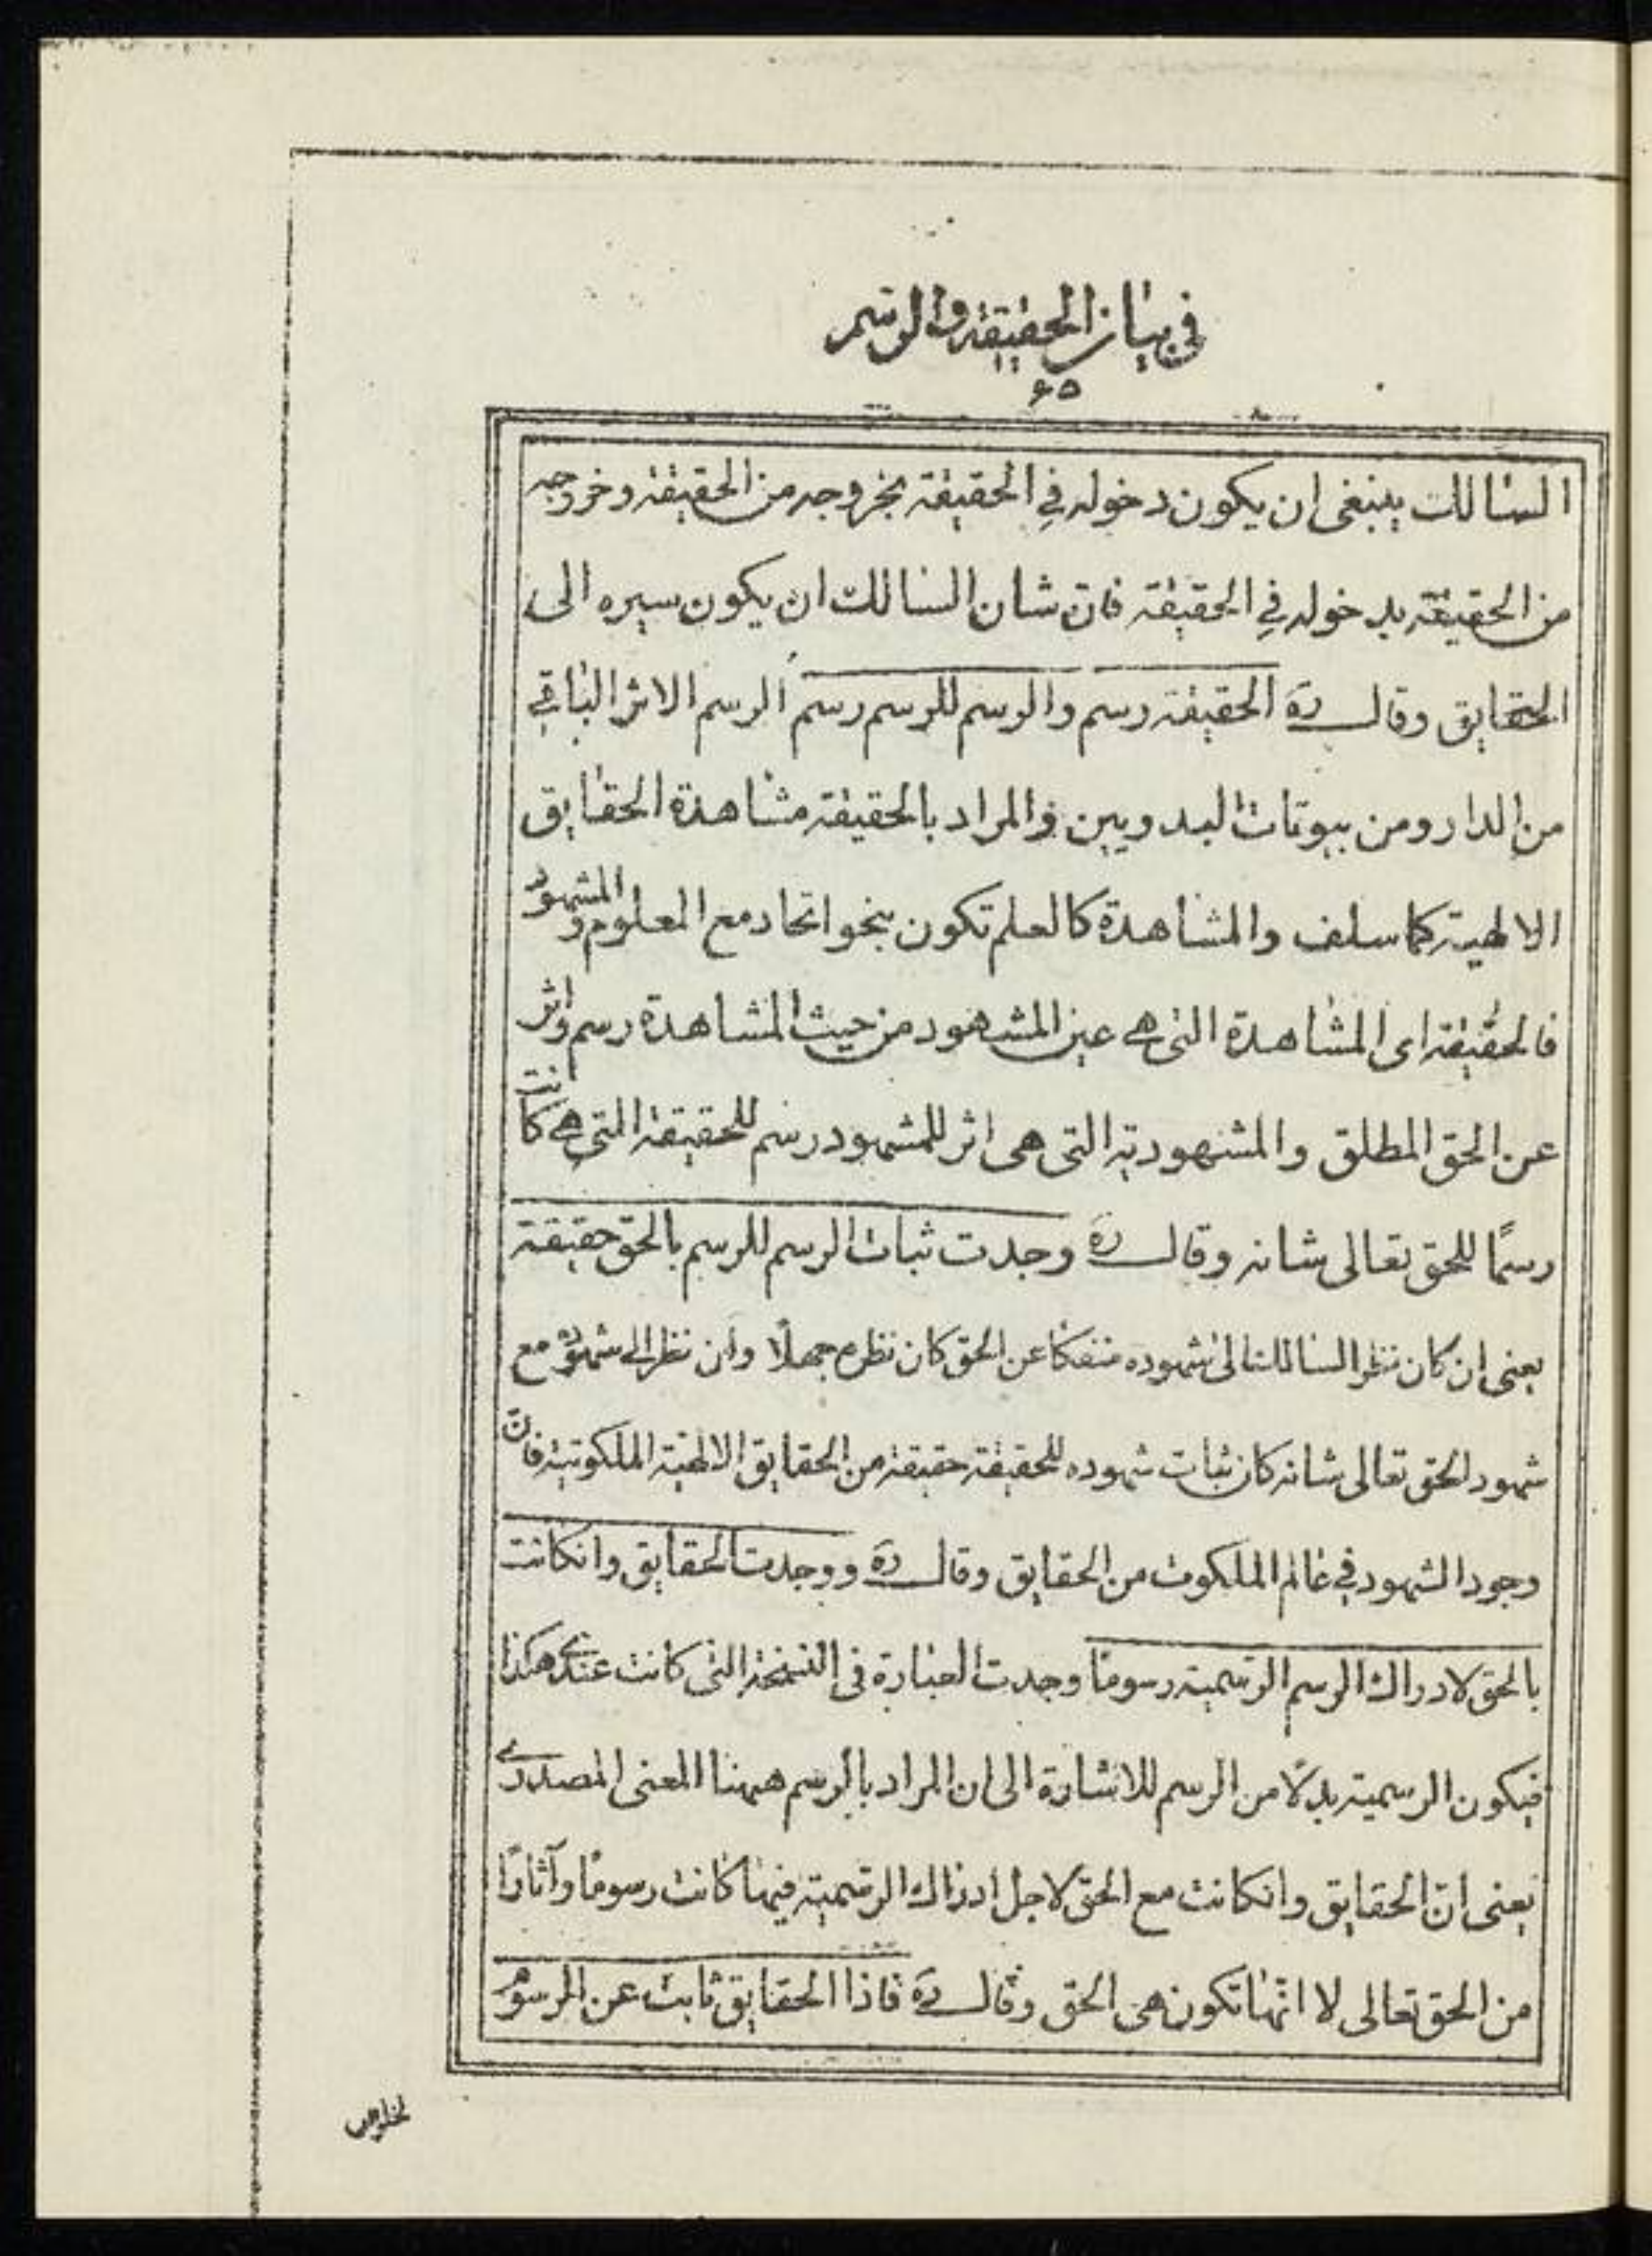 في بيان الحقيقة والرسم
۶۵
السالك ينبغي ان يكون دخوله في الحقيقة بخروجه من الحقيقة وخروجه
من الحقيقة بدخوله في الحقيقة فان شان السالك ان يكون سيره الى
الحقايق وقال ره الحقيقة رسم والرسم للرسم رسم الرسم الاثر الباقي
من الدار ومن بيوتات البدويين والمراد بالحقيقة مشاهدة الحقايق
الالهية كما سلف والمشاهدة كالعلم تكون بنحو اتحاد مع المعلوم والمشهود
فالحقيقة اى المشاهدة التى هي عين المشهود من حيث المشاهدة رسم واثر
عن الحق المطلق والمشهودية التى هى اثر للمشهود رسم للحقيقة التي هي كانت
رسمًا للحق تعالى شانه وقال ره وجدت ثبات الرسم للرسم بالحق حقيقة
يعنى ان كان نظر السالك الى شهوده منفكا عن الحق كان نظره جهلًا وان نظر الى شهوده مع
شهود الحق تعالى شانه كان ثبات شهوده للحقيقة حقيقة من الحقايق الالهية الملكوتية فانّ
وجود الشهود في عالم الملكوت من الحقايق وقال ره ووجدت الحقايق وانكانت
بالحق لادراك الرسم الرسمية رسومًا وجدت العبارة فى النسخة التى كانت عندي هكذا
فيكون الرسمية بدلًا من الرسم للاشارة الى ان المراد بالرسم ههنا المعنى المصدري
يعنى انّ الحقايق وانكانت مع الحق لاجل ادراك الرسمية فيها كانت رسومًا وآثارًا
من الحق تعالى لا انّها تكون هى الحق وقال ره فاذا الحقايق ثابت عن الرسوم